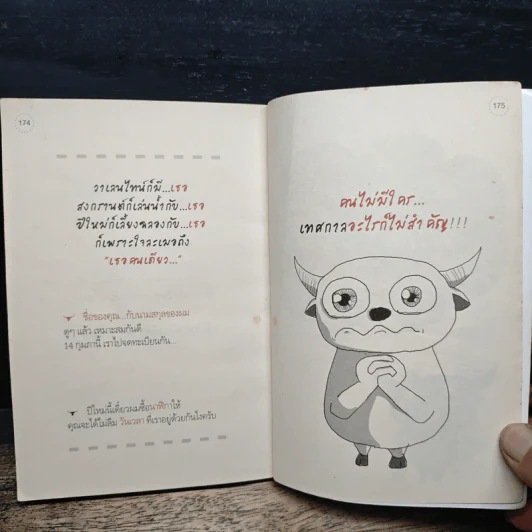 174
วาเลนไทน์ก็มี...เธอ
สงกรานต์ก็เล่นน้ำกับ...เธอ
ปีใหม่ก็เลี้ยงฉลองกับ...เธอ
ก็เพราะใจละเมอถึง
"เธอคนเดียว..."
ชื่อของคุณ...กับนามสกุลของผม
ดูๆ แล้ว เหมาะสมกันดี
14 กุมภานี้ เราไปจดทะเบียนกัน...
ปีใหม่นี้เดี๋ยวผมซื้อนาฬิกาให้
คุณจะได้ไม่ลืม วันเวลา ที่เราอยู่ด้วยกันไงครับ
175
คนไม่มีใคร...
เทศกาลอะไรก็ไม่สำคัญ!!!